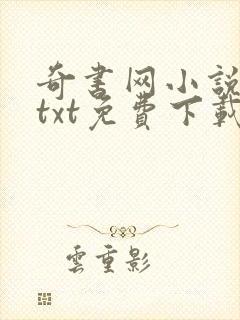 奇書网小說
txt免費下載
雲重影